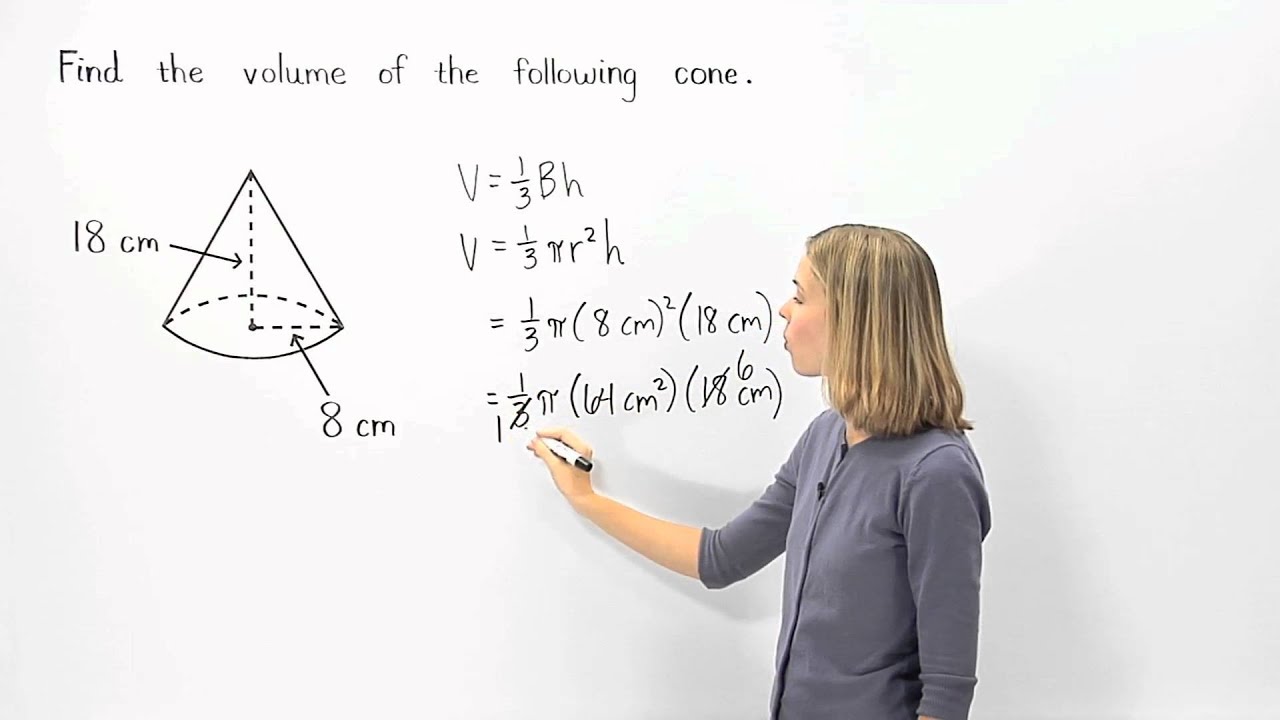 Find the volume of the following cone.
18 cm
8 cm
V = 1/3 Bh
V = 1/3 πr²h
= 1/3 π(8 cm)²(18 cm)
= 1/3 π(64 cm²)(18 6 cm)
1